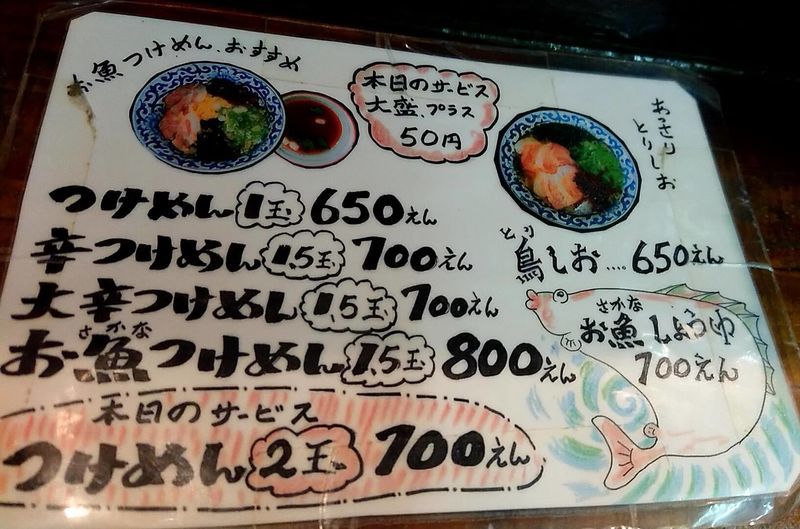 お魚つけめん、おすすめ
本日のサービス
大盛、プラス
50円
あっさり
とりしお
つけめん 1玉 650えん
辛つけめん 1,5玉 700えん
大辛つけめん 1,5玉 700えん
さかな
お魚つけめん 1,5玉 800えん
本日のサービス
つけめん 2玉 700えん
とり
鳥しお....650えん
さかな
お魚しょうゆ
700えん